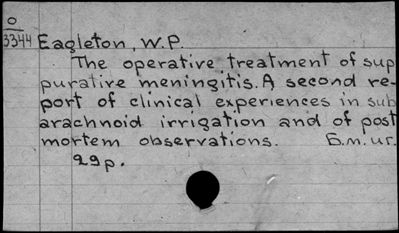 O
3344 Eagleton, W.P.
The operative treatment of sup
purative meningitis. A second re-
port of clinical experiences in sub
arachnoid irrigation and of post
mortem observations. Б.м.иг.
29p.